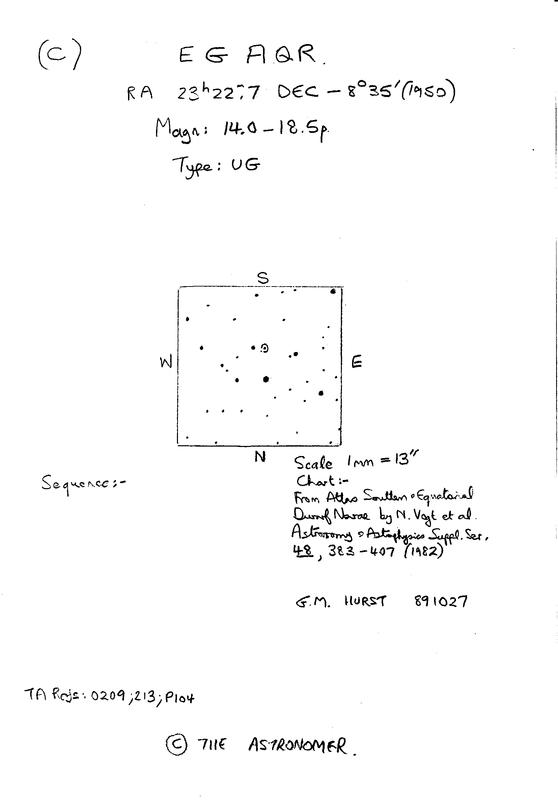 (C) EG AQR.
RA 23ʰ22ᵐ.7 DEC - 8°35'(1950)
Magn: 14.0 - 18.5p.
Type: UG
S
W
E
N
Scale 1mm = 13"
Sequence:-
Chart:-
From Atlas Southern & Equatorial
Dwarf Novae by N. Vogt et al.
Astronomy & Astrophysics Suppl. Ser,
48, 383-407 (1982)
G.M. HURST 891027
TA Refs: 0209;213;P104
© THE ASTRONOMER.